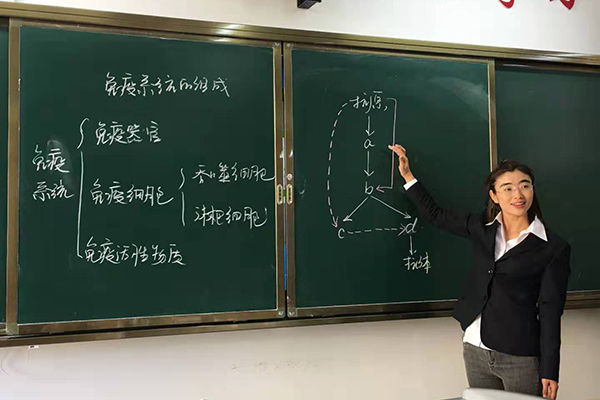 免疫系统的组成
免疫系统
免疫器官
免疫细胞
吞噬细胞
淋巴细胞
免疫活性物质
抗原
a
b
c
d
抗体